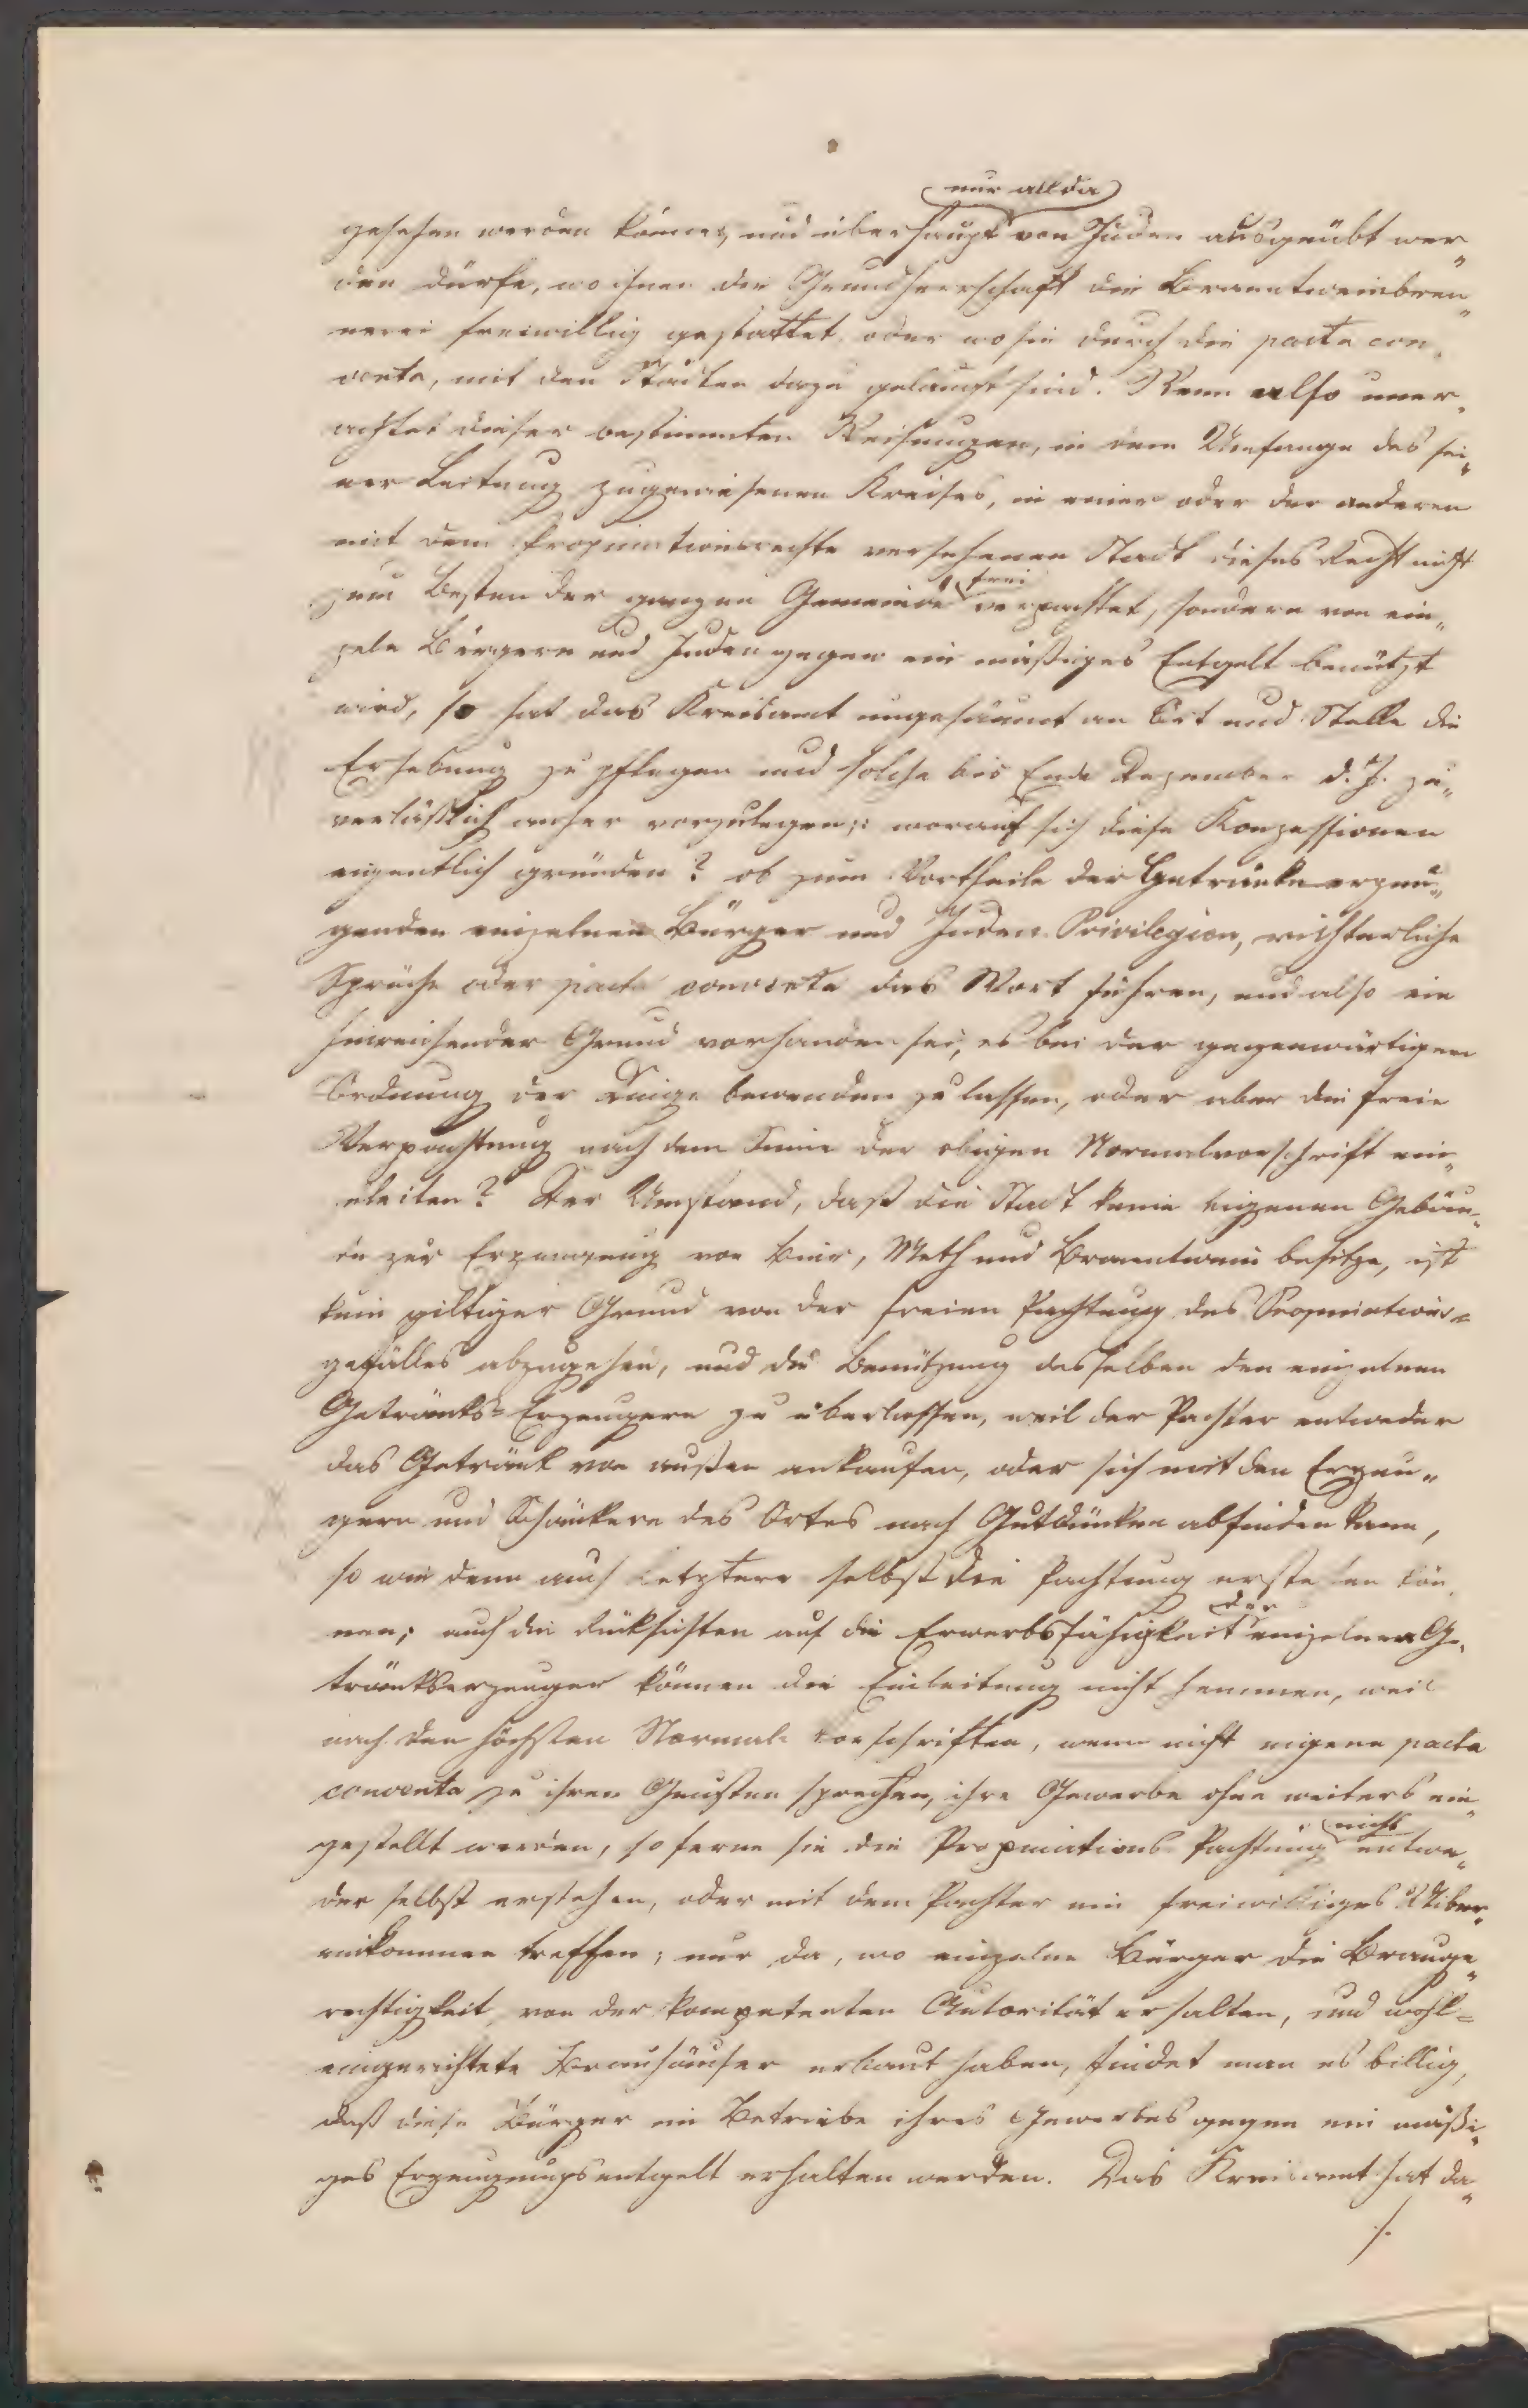 nur allda
gesehen werden könne, und überhaupt von Juden ausgeübt wer„
den dürfe, wo ihnen die Grundherrschaft die Branntweinbren„
nerei freiwillig gestattet, oder wo sie durch die pacta con„
venta, mit den Städten dazu gelangt sind. Wenn also uner„
achtet dieser bestimmten Weisungen, in dem Umfange des sei„
ner Leitung zugewiesenen Kreises, in einer oder der anderen
mit dem Propinationsrechte versehenen Stadt dieses Recht nicht
zum Besten der ganzen Gemeinde frei verpachtet, sondern von ein„
zeln Bürgern und Juden gegen ein mäßiges Entgelt benützt
wird, so hat das Kreisamt ungesäumt an Ort und Stelle die
Erhebung zu pflegen und solche bis Ende Dezember d. J. zu„
verläßlich anher vorzulegen; worauf sich diese Konzessionen
eigentlich gründen? ob zum Vortheile der Getränke erzeu„
genden einzelnen Bürger und Juden Privilegien, richterliche
Sprüche oder pacta conventa das Wort führen, und also ein
hinreichender Grund vorhanden sei, es bei der gegenwärtigen
Ordnung der Dinge bewenden zu lassen, oder aber die freie
Verpachtung nach dem Sinne der obigen Normalvorschrift ein„
zuleiten? Der Umstand, daß die Stadt keine eigenen Gebäu„
de zur Erzeugung von Bier, Meth und Branntwein besitze, ist
kein giltiger Grund von der freien Pachtung des Propinations=
gefälles abzugehen, und die Benützung desselben den einzelnen
Getränks=Erzeugern zu überlassen, weil der Pachter entweder
das Getränk von außen ankaufen, oder sich mit den Erzeu„
gern und Schänkern des Ortes nach Gutdünken abfinden kann,
so wie denn auch Letztere selbst die Pachtung erstehen kön„
nen; auch die Rücksichten auf die Erwerbsfähigkeit der einzelnen Ge„
tränkserzeuger können die Einleitung nicht hemmen, weil
nach den höchsten Normal-Vorschriften, wenn nicht eigene pacta
conventa zu ihren Gunsten sprechen, ihre Gewerbe ohne weiters ein„
gestellt werden, so ferne sie die Propinations-Pachtung nicht entwe„
der selbst erstehen, oder mit dem Pachter ein freiwilliges Uiber„
einkommen treffen; nur da, wo einzelne Bürger die Brauge„
rechtigkeit von der kompetenten Autorität erhalten, und wohl=
eingerichtete Brauhäuser erbaut haben, findet man es billig,
daß diese Bürger im Betriebe ihres Gewerbes gegen ein mäßi„
ges Erzeugungsentgelt erhalten werden. Das Kreisamt hat da„
./.